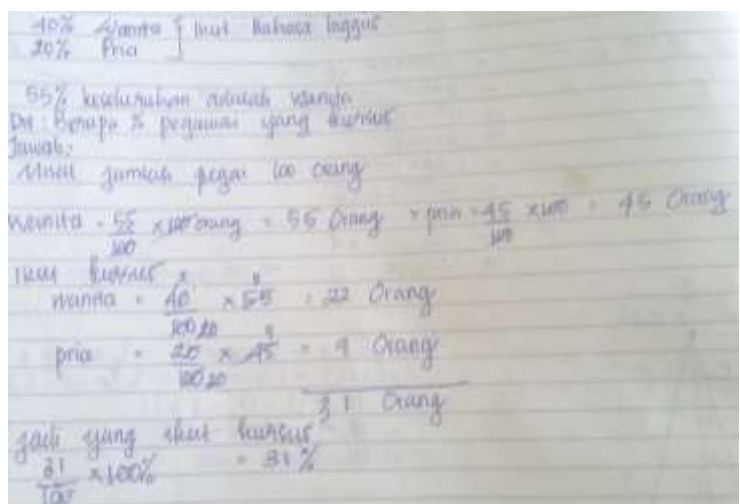 40% Wanita } Ikut Bahasa Inggris
20% Pria
55% keseluruhan adalah wanita
Dit : Berapa % pegawai yang kursus
Jawab:
Misal jumlah pegai 100 orang
wanita = 55/100 x 100 orang = 55 Orang pria = 45/100 x 100 = 45 Orang
ikut kursus
wanita = 40/100 x 55 = 22 Orang
pria = 20/100 x 45 = 9 Orang
31 Orang
Jadi yang ikut kursus
31/100 x 100% = 31%